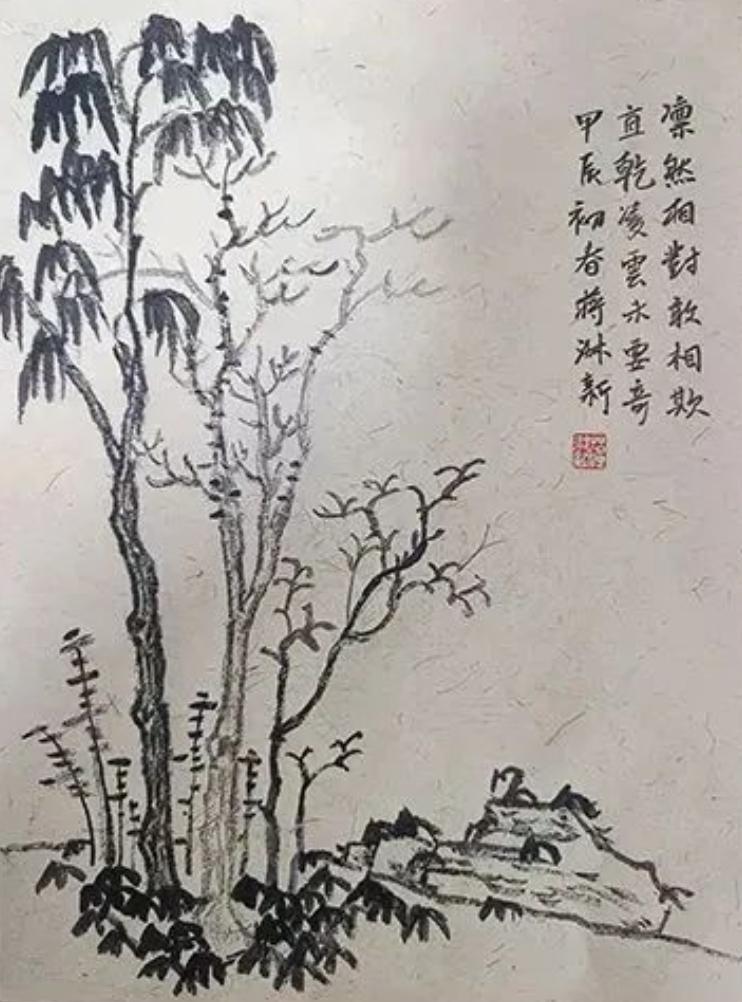 凛然相對敢相欺
直乾凌雲未要奇
甲辰初春蒋淋新